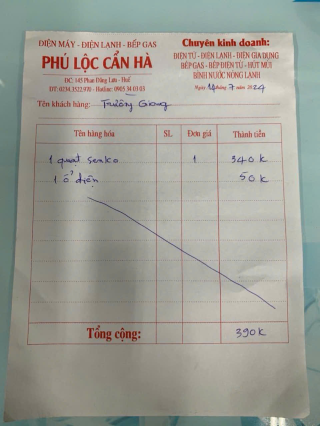 ĐIỆN MÁY - ĐIỆN LẠNH - BẾP GAS
PHÚ LỘC CẨN HÀ
ĐC: 145 Phan Đăng Lưu - Huế
ĐT: 0234.3522.970 - Hotline: 0905 34 03 03
Chuyên kinh doanh:
ĐIỆN TỬ - ĐIỆN LẠNH - ĐIỆN GIA DỤNG
BẾP GAS - BẾP ĐIỆN TỬ - HÚT MÙI
BÌNH NƯỚC NÓNG LẠNH
Ngày 14 tháng 7 năm 2024
Tên khách hàng: Trường Giang
Tên hàng hóa SL Đơn giá Thành tiền
1 quạt senko 1 340k
1 ổ điện 50k
Tổng cộng: 390k